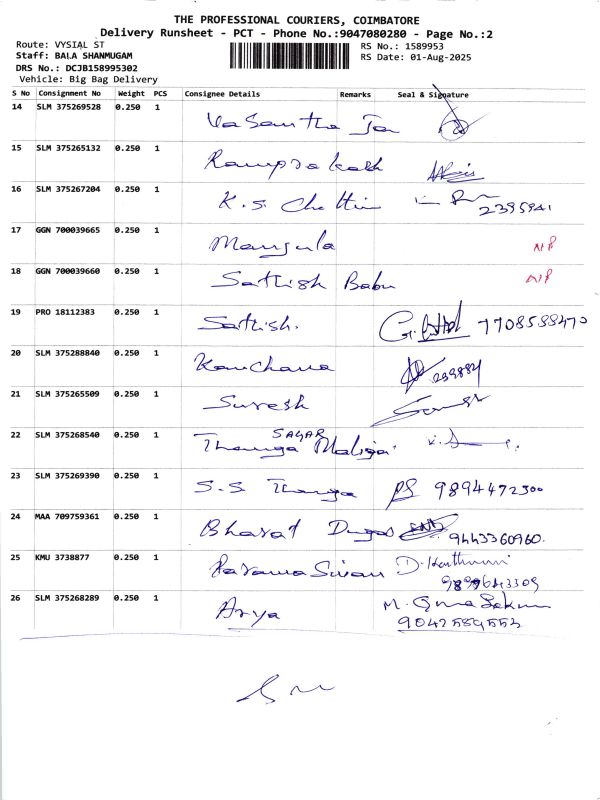 THE PROFESSIONAL COURIERS, COIMBATORE
Delivery Runsheet - PCT - Phone No.:9047080280 - Page No.:2
Route: VYSIAL ST
Staff: BALA SHANMUGAM
DRS No.: DCJB158995302
Vehicle: Big Bag Delivery
RS No.: 1589953
RS Date: 01-Aug-2025
S No Consignment No Weight PCS Consignee Details Remarks Seal & Signature
14 SLM 375269528 0.250 1 Vasantha
15 SLM 375265132 0.250 1 Ramprakash
16 SLM 375267204 0.250 1 K.S. Chettir 2395941
17 GGN 700039665 0.250 1 Mangula N/P
18 GGN 700039660 0.250 1 Sathish Babu N/P
19 PRO 18112383 0.250 1 Sathish. 7708588470
20 SLM 375288840 0.250 1 Kanchana
21 SLM 375265509 0.250 1 Suresh
22 SLM 375268540 0.250 1 Thanga SAGAR Maligai
23 SLM 375269390 0.250 1 S.S Thanga 9894472300
24 MAA 709759361 0.250 1 Bharat 9443360960.
25 KMU 3738877 0.250 1 Parama Sivan
26 SLM 375268289 0.250 1 Arya